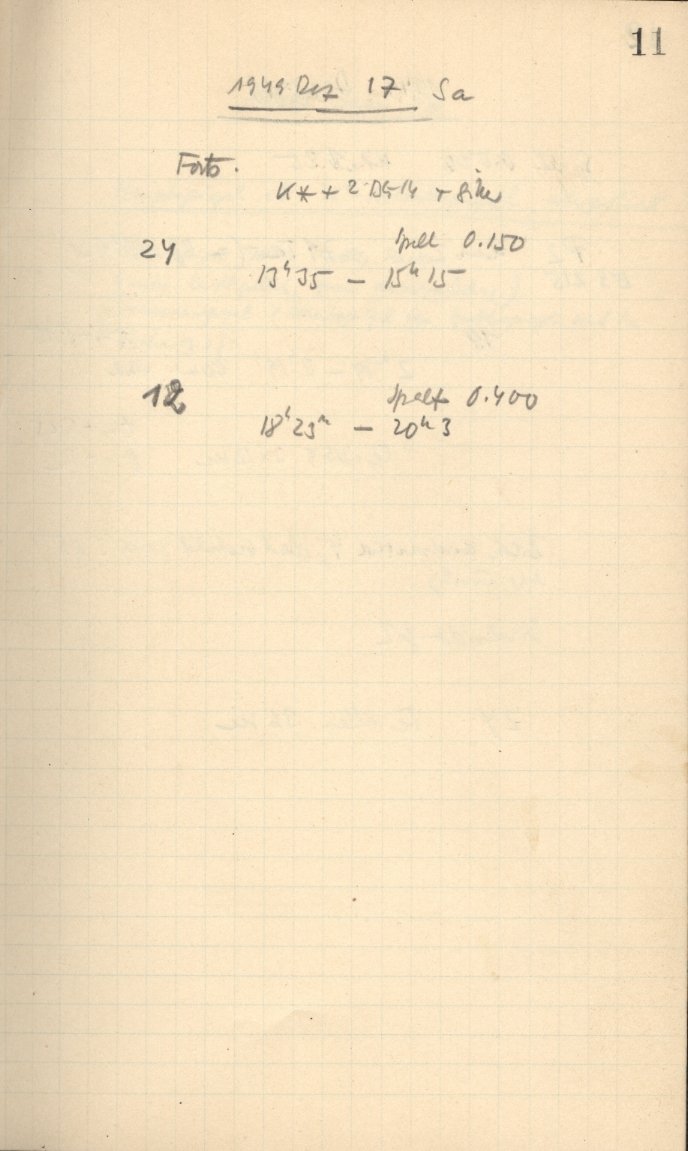 11
1949 Dez 17 Sa
Forts.
K * + 2 BG 14 +
24 Spalt 0.150
13h 35 – 15h 15
12 Spalt 0.400
18h 23m – 20h 3